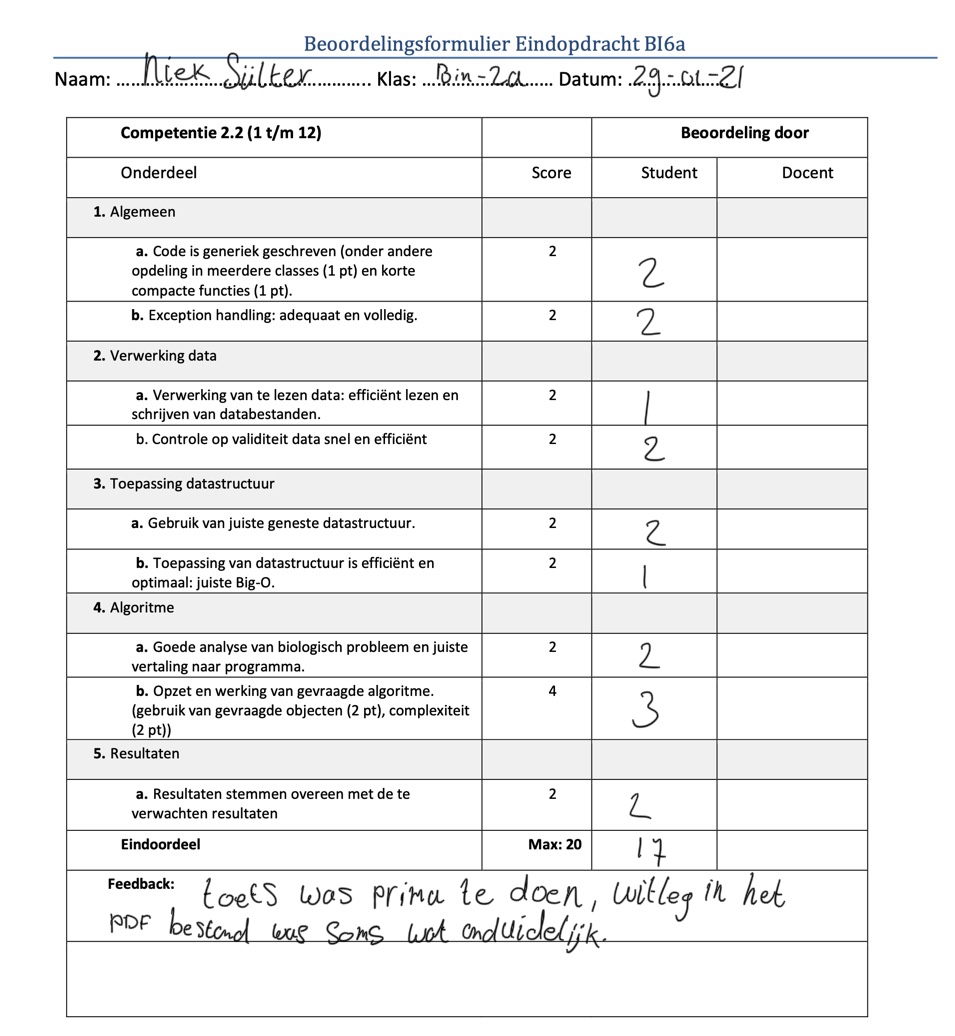 Beoordelingsformulier Eindopdracht BI6a
Naam: ....Niek Sülter.... Klas: ...Bin-2a...... Datum: .29-01-21
Competentie 2.2 (1 t/m 12) Beoordeling door
Onderdeel Score Student Docent
1. Algemeen
a. Code is generiek geschreven (onder andere 2 2
opdeling in meerdere classes (1 pt) en korte
compacte functies (1 pt).
b. Exception handling: adequaat en volledig. 2 2
2. Verwerking data
a. Verwerking van te lezen data: efficiënt lezen en 2 1
schrijven van databestanden.
b. Controle op validiteit data snel en efficiënt 2 2
3. Toepassing datastructuur
a. Gebruik van juiste geneste datastructuur. 2 2
b. Toepassing van datastructuur is efficiënt en 2 1
optimaal: juiste Big-O.
4. Algoritme
a. Goede analyse van biologisch probleem en juiste 2 2
vertaling naar programma.
b. Opzet en werking van gevraagde algoritme. 4 3
(gebruik van gevraagde objecten (2 pt), complexiteit
(2 pt))
5. Resultaten
a. Resultaten stemmen overeen met de te 2 2
verwachten resultaten
Eindoordeel Max: 20 17
Feedback: toets was prima te doen, uitleg in het
PDF bestand was soms wat onduidelijk.